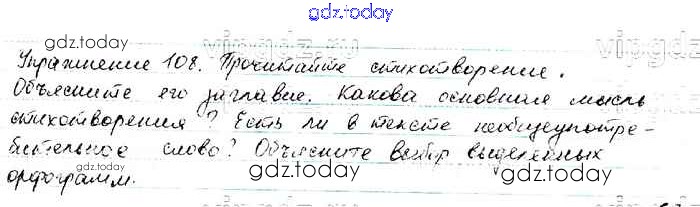 gdz.today
gdz.today
vipgdz.ru
vipgdz
Упражнение 108. Прочитайте стихотворение.
Объясните его заглавие. Какова основная мысль
стихотворения? Есть ли в тексте необщеупотре-
бительное слово? Объясните выбор выделенных
орфограмм.
gdz.today
gdz.today